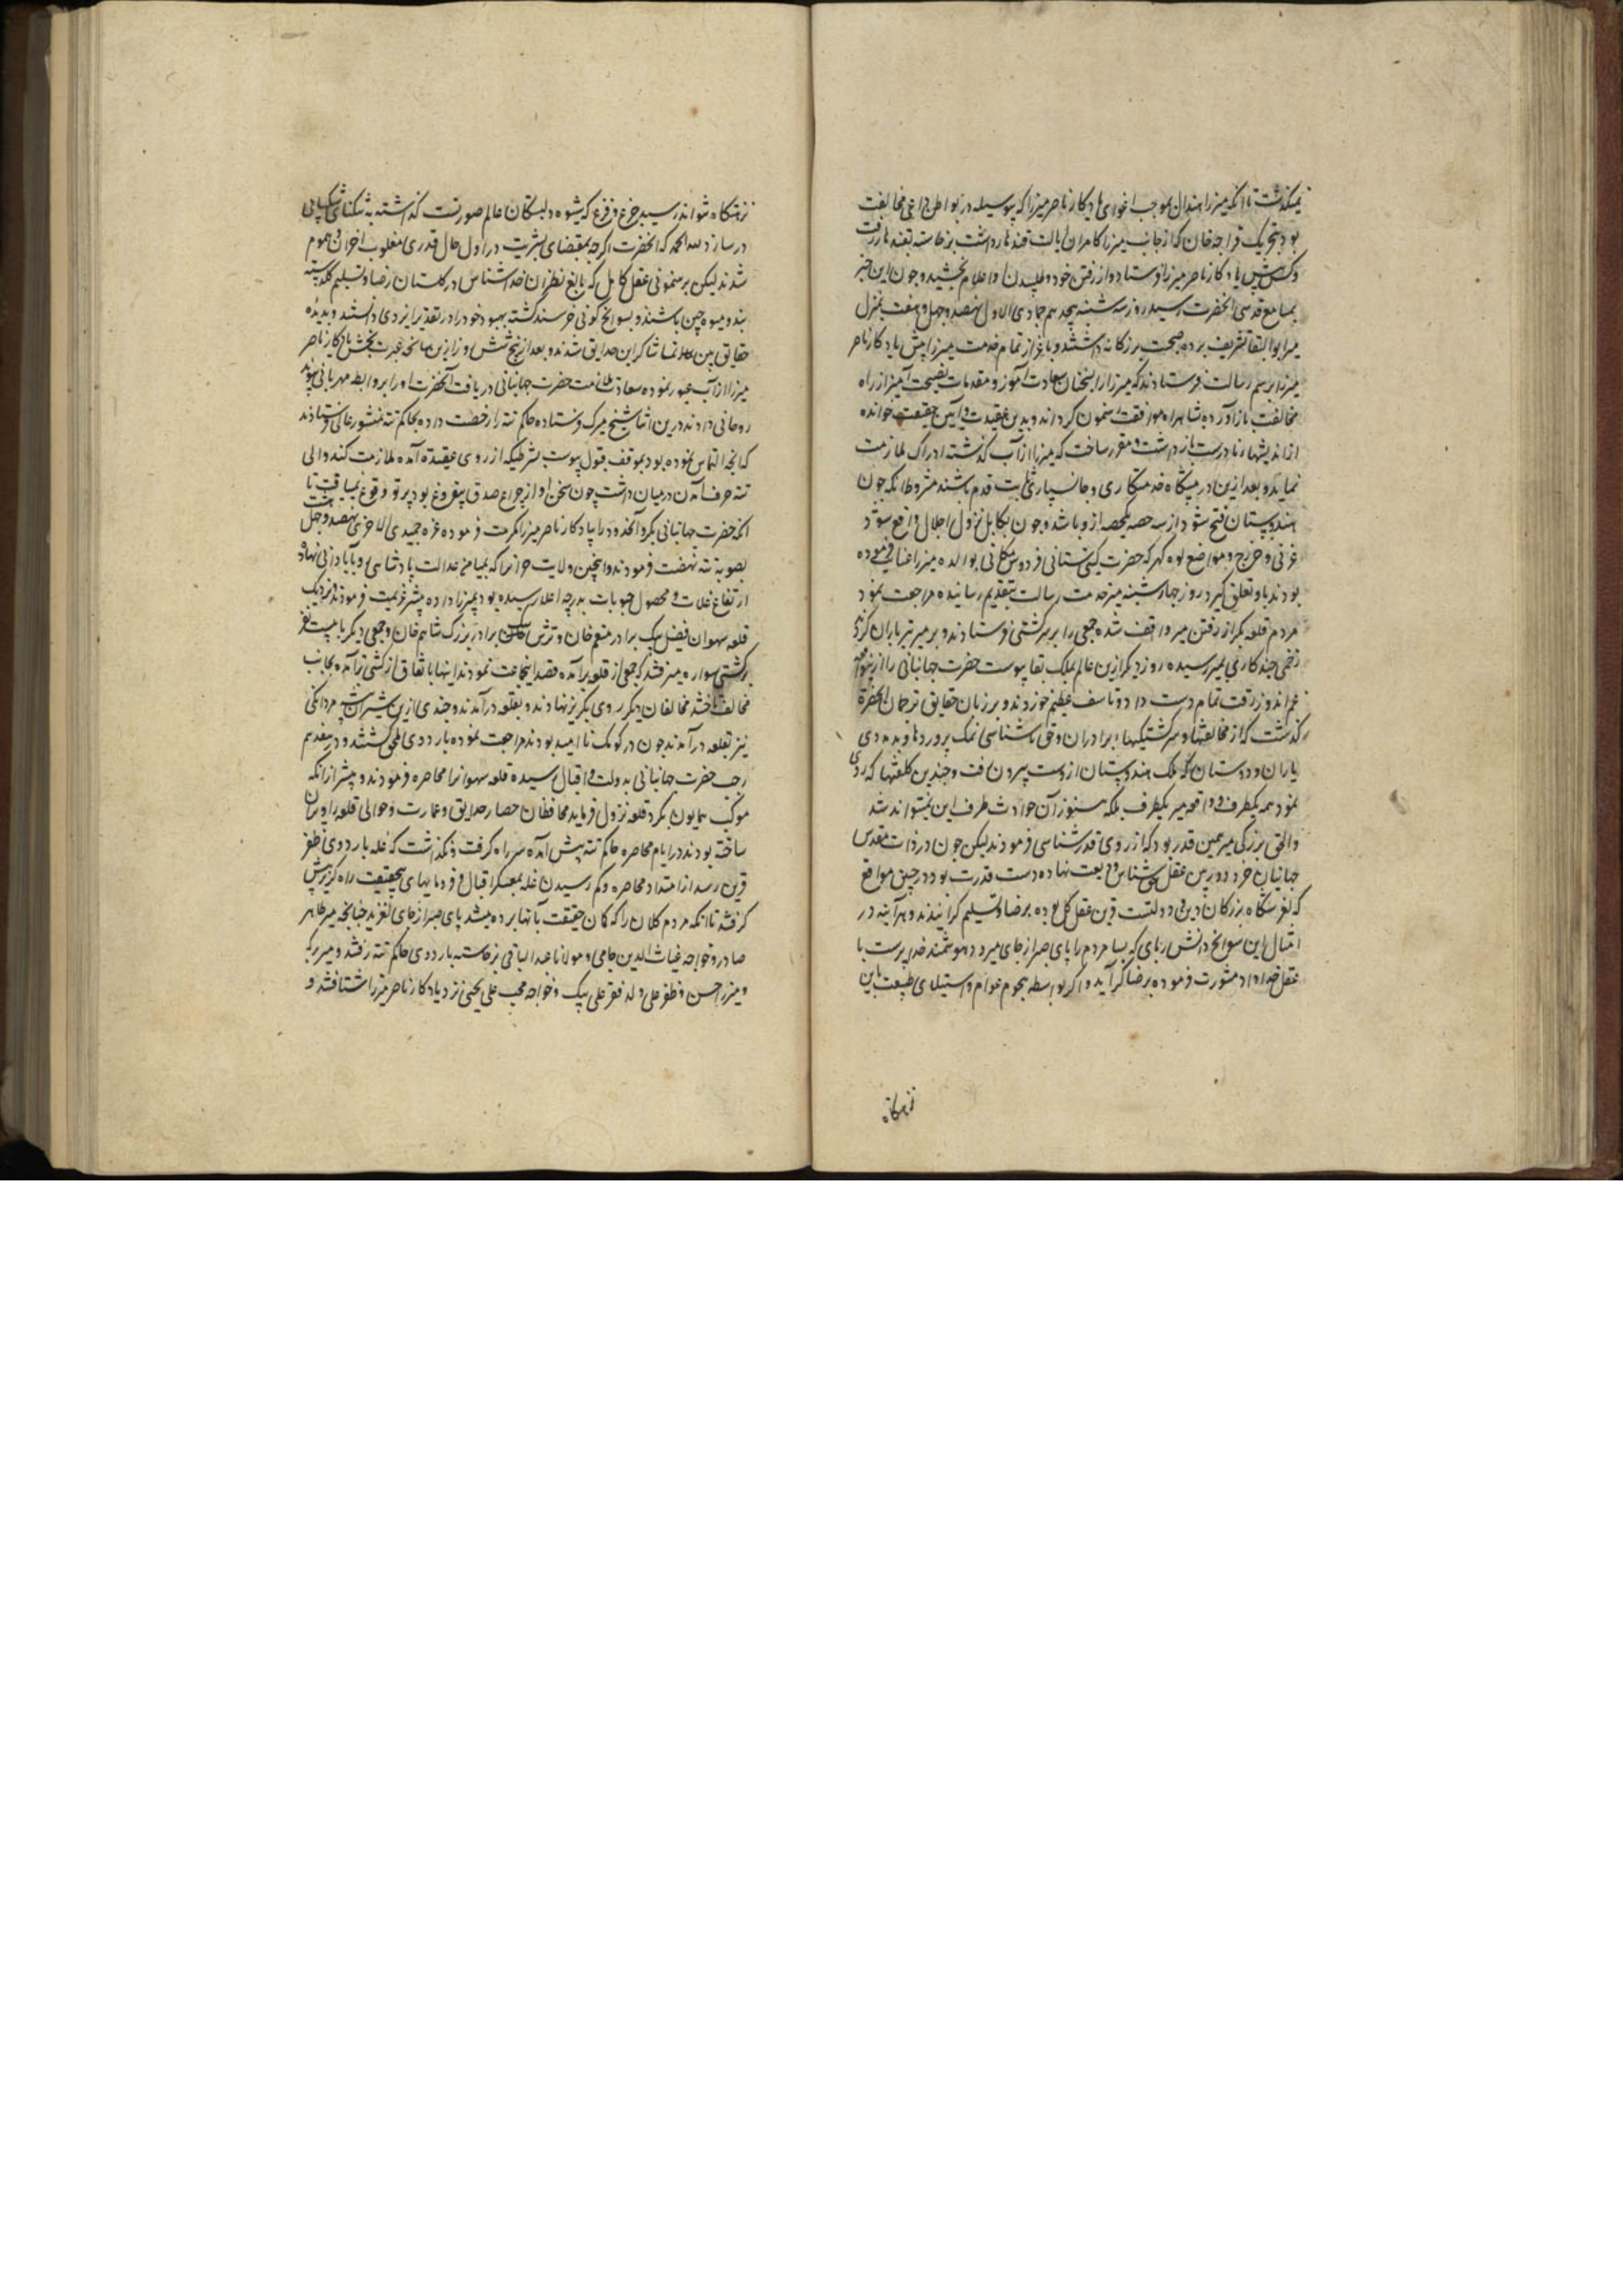 نمیگذشت تا آنکه میرزا هندال بموجب اغوای یادگار ناصر میرزا که پیوسته در بواطن داعی مخالفت
بود و بتحریک قراچه خان که از جانب میرزا کامران ایالت قندهار داشت برخاسته بقندهار رفت
و کس پیش یادگار ناصر میرزا فرستاد و از رفتن خود و طلبیدن او اعلام بخشید و چون این خبر
بمسامع قدسی آنحضرت رسید روز سه شنبه هجدهم جمادی الاول نهصد و چهل و هفت بمنزل
میر ابوالبقا تشریف برده صحبت بزرگانه داشتند و باعزاز تمام خدمت میر را پیش یادگار ناصر
میرزا برسم رسالت فرستادند که میرزا را بسخنان سعادت آموز و مقدمات نصیحت آمیز از راه
مخالفت باز آورده بشاهراه موافقت رهنمون گرداند و بدین عقیدت و آیین حقیقت خوانده
از اندیشهای نادرست بازداشت و مقرر ساخت که میرزا از آب گذشته ادراک ملازمت
نماید و بعد ازین در پیشگاه خدمتگاری و جانسپاری ثابت قدم باشند مشروط آنکه چون
هندوستان فتح شود از سه حصه یکحصه از و باشد و چون بکابل نزول اجلال واقع شود
غزنی و چرخ و مواضع لوه گهر که حضرت گیتی ستانی فردوس مکانی بوالده میرزا عنایت فرموده
بودند باو تعلق گیرد روز چهارشنبه میر خدمت رسالت بتقدیم رسانیده مراجعت نمود
مردم قلعه بکر از رفتن میر واقف شده جمعی را بر سر کشتی فرستادند و بر میر تیرباران کردند
زخمی چند کاری بمیر رسیده روز دیگر ازین عالم بملک بقا پیوست حضرت جهانبانی را ازین واقعه
غم اندوز رقت تمام دست داد و تاسف عظیم خوردند و بر زبان حقایق ترجمان آنحضرت
گذشت که از مخالفتها و سرکشتیکیهای برادران و حق ناشناسی نمک پروردها و بدمددی
یاران و دوستان که ملک هندوستان از دست بیرون رفت و چندین کلفتها که روی
نمود همه یکطرف و واقعه میر یکطرف بلکه هنوز آن حوادث طرف این نمیتواند شد
والحق بزرگی میر همین قدر بود که از روی قدرشناسی فرمودند لیکن چون در ذات مقدس
جهانبان خرد دوربین عقل حق شناس ودیعت نهاده دست قدرت بود در چنین مواقع
که لغزشگاه بزرگان دین و دولتست قرین عقل کل بوده برضا و تسلیم گرانیدند و هرآینه در
امثال این سوانح دانش ربای که بسا مردم را پای صبر از جای میرود هوشمند خداپرست با
عقل خداداد مشورت فرموده برضا گراید و اگر بواسطه هجوم عوام و استیلای طبیعت باین
نزهتگاه
نزهتگاه نتواند رسید جزع و فزع که شیوه دلبستگان عالم صورتست گذاشته به تنگنای شکیبائی
در سازد لله الحمد که آنحضرت اگرچه بمقتضای بشریت در اول حال قدری مغلوب احزان و هموم
شدند لیکن برهنمونی عقل کامل که بالغ نظران خداشناس در گلستان رضا و تسلیم گلدسته
بند و میوه چین باشند و بسوانح کونی خرسند گشته بهبود خود را در تقدیر ایزدی دانستند و بدیده
حقایق بین تماشاگر این حدایق شدند و بعد از پنج شش روز ازین سانحه عبرت بخش یادگار ناصر
میرزا از آب عبور نموده سعادت ملازمت حضرت جهانبانی دریافت آنحضرت او را بروابط مهربانی پیوند
روحانی دادند درین اثنا شیخ میرک فرستاده حاکم تته را رخصت داده بحاکم تته منشور عالی فرستادند
که آنچه التماس نموده بود بموقف قبول پیوست بشرطیکه از روی عقیده آمده ملازمت کند والی
تته حرف آمدن در میان داشت چون سخن او از چراغ صدق بیفروغ بود پرتو وقوع نمییافت تا
آنکه حضرت جهانبانی بکر و آنحدود را بیادگار ناصر میرزا مکرمت فرموده غره جمیدی الاخری نهصد و چهل هشت
بصوب تته نهضت فرمودند و اینچنین ولایت خراب را که بمیامن عدالت پادشاهی رو بآبادانی نهاده
ارتفاع غلات و محصول حبوبات بدرجه اعلا رسیده بود بمیرزا داده پیشتر عزیمت فرمودند و نزدیک
قلعه سهوان فضیل بیک برادر منعم خان و ترش بیک برادر بزرگ شاهم خان و جمعی دیگر با بیست نفر
بر کشتی سواره میرفتند که جمعی از قلعه برآمده قصد اینجماعت نمودند اینها باتفاق از کشتی برآمده بجانب
مخالف تاختند مخالفان دیگر روی بگریز نهادند و بقلعه درآمدند و چندی ازین شیران بیشه مردانگی
نیز بقلعه درآمدند چون در کومک ناامید بودند مراجعت نموده باردوی ملحق گشتند و در هفدهم
رجب حضرت جهانبانی بدولت و اقبال رسیده قلعه سهوان را محاصره فرمودند و پیشتر از آنکه
موکب همایون بگرد قلعه نزول فرماید محافظان حصار حدایق و عمارت حوالی قلعه را ویران
ساخته بودند در ایام محاصره حاکم تته پیش آمده سر راه گرفت و نگذاشت که غله باردوی ظفر
قرین رسد از امتداد محاصره و کم رسیدن غله بمعسکر اقبال فرومایهای بیحقیقت راه گریز پیش
گرفتند تا آنکه مردم کلان را که گمان حقیقت بآنها برده میشد پای صبر از جای لغزید چنانچه میر طاهر
صادر و خواجه غیاث الدین جامی و مولانا عبدالباقی برخاسته باردوی حاکم تته رفتند و میر برکه
و میرزا حسن و ظفر علی ولد فقر علی بیک و خواجه محب علی بخشی نزد یادگار ناصر میرزا شتافتند و